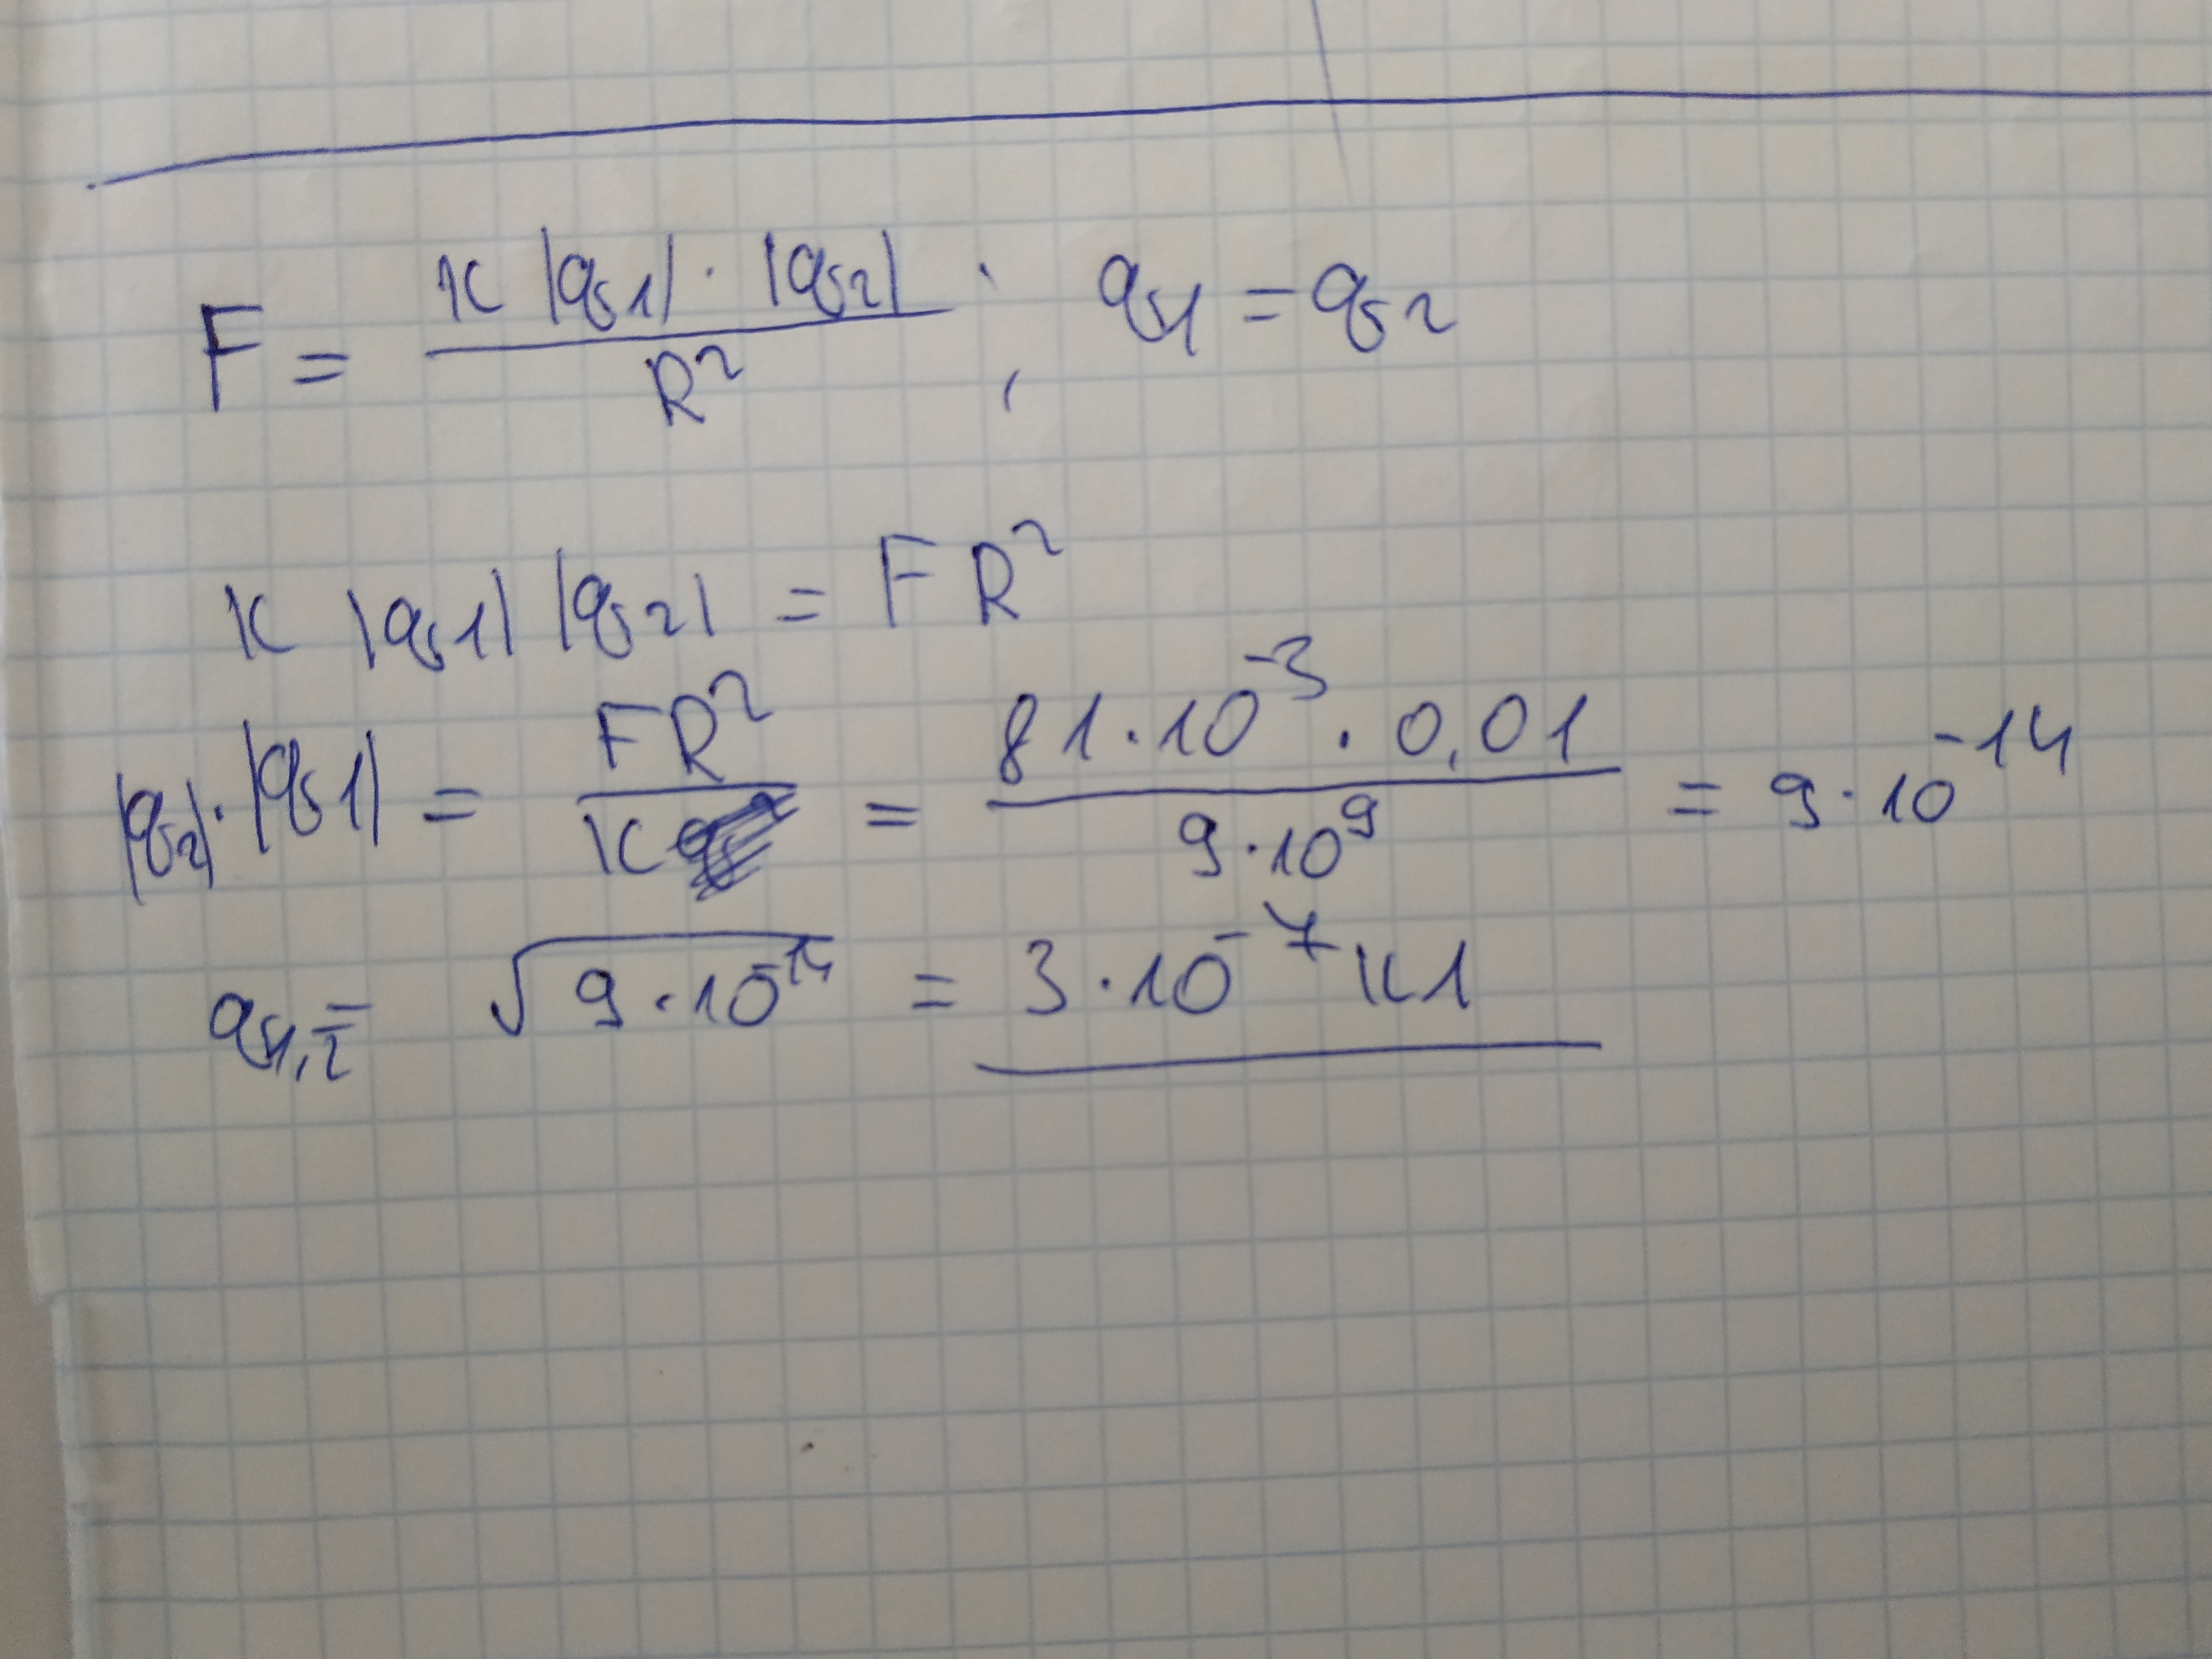 F = K |q1| · |q2| / R² ; q1 = q2
K |q1| |q2| = F R²
|q2| · |q1| = FR² / K = 81 · 10⁻³ · 0,01 / 9 · 10⁹ = 9 · 10⁻¹⁴
q1,2 = √9 · 10⁻¹⁴ = 3 · 10⁻⁷ Кл